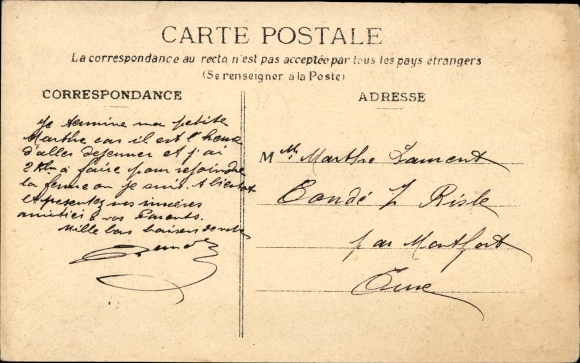 CARTE POSTALE
La correspondance au recto n'est pas acceptée par tous les pays étrangers
(Se renseigner à la Poste)
CORRESPONDANCE
Je termine ma petite
Marthe car il est l'heure
d'aller déjeuner et j'ai
2 Km à faire pour rejoindre
la ferme ou je suis. A bientot
et présentez mes sincères
amitiés à vos Parents.
Mille bons baisers de votre
ADRESSE
M Marthe Lament
Condé s/ Risle
par Montfort
Eure